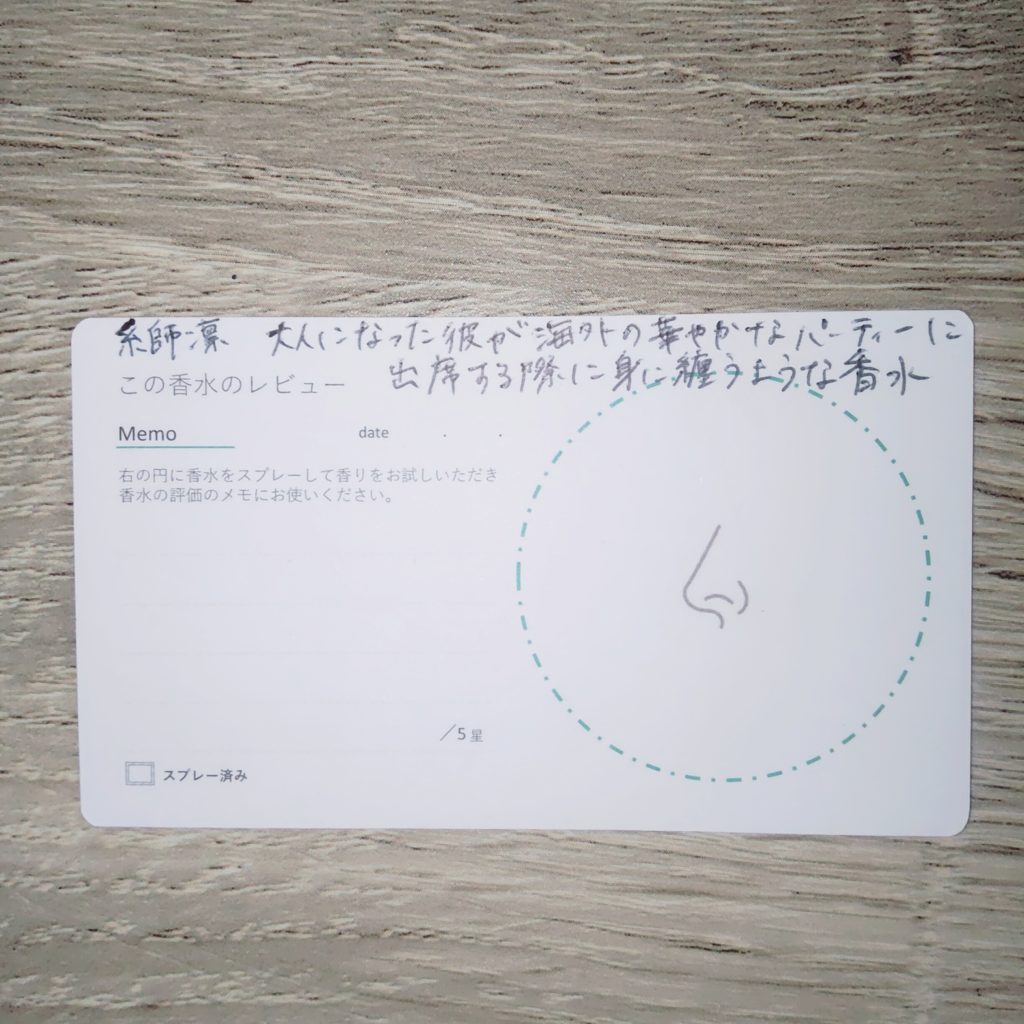 糸師凛 大人になった彼が海外の華やかなパーティーに
出席する際に身に纏うような香水
この香水のレビュー
Memo
date . .
右の円に香水をスプレーして香りをお試しいただき
香水の評価のメモにお使いください。
/5星
スプレー済み